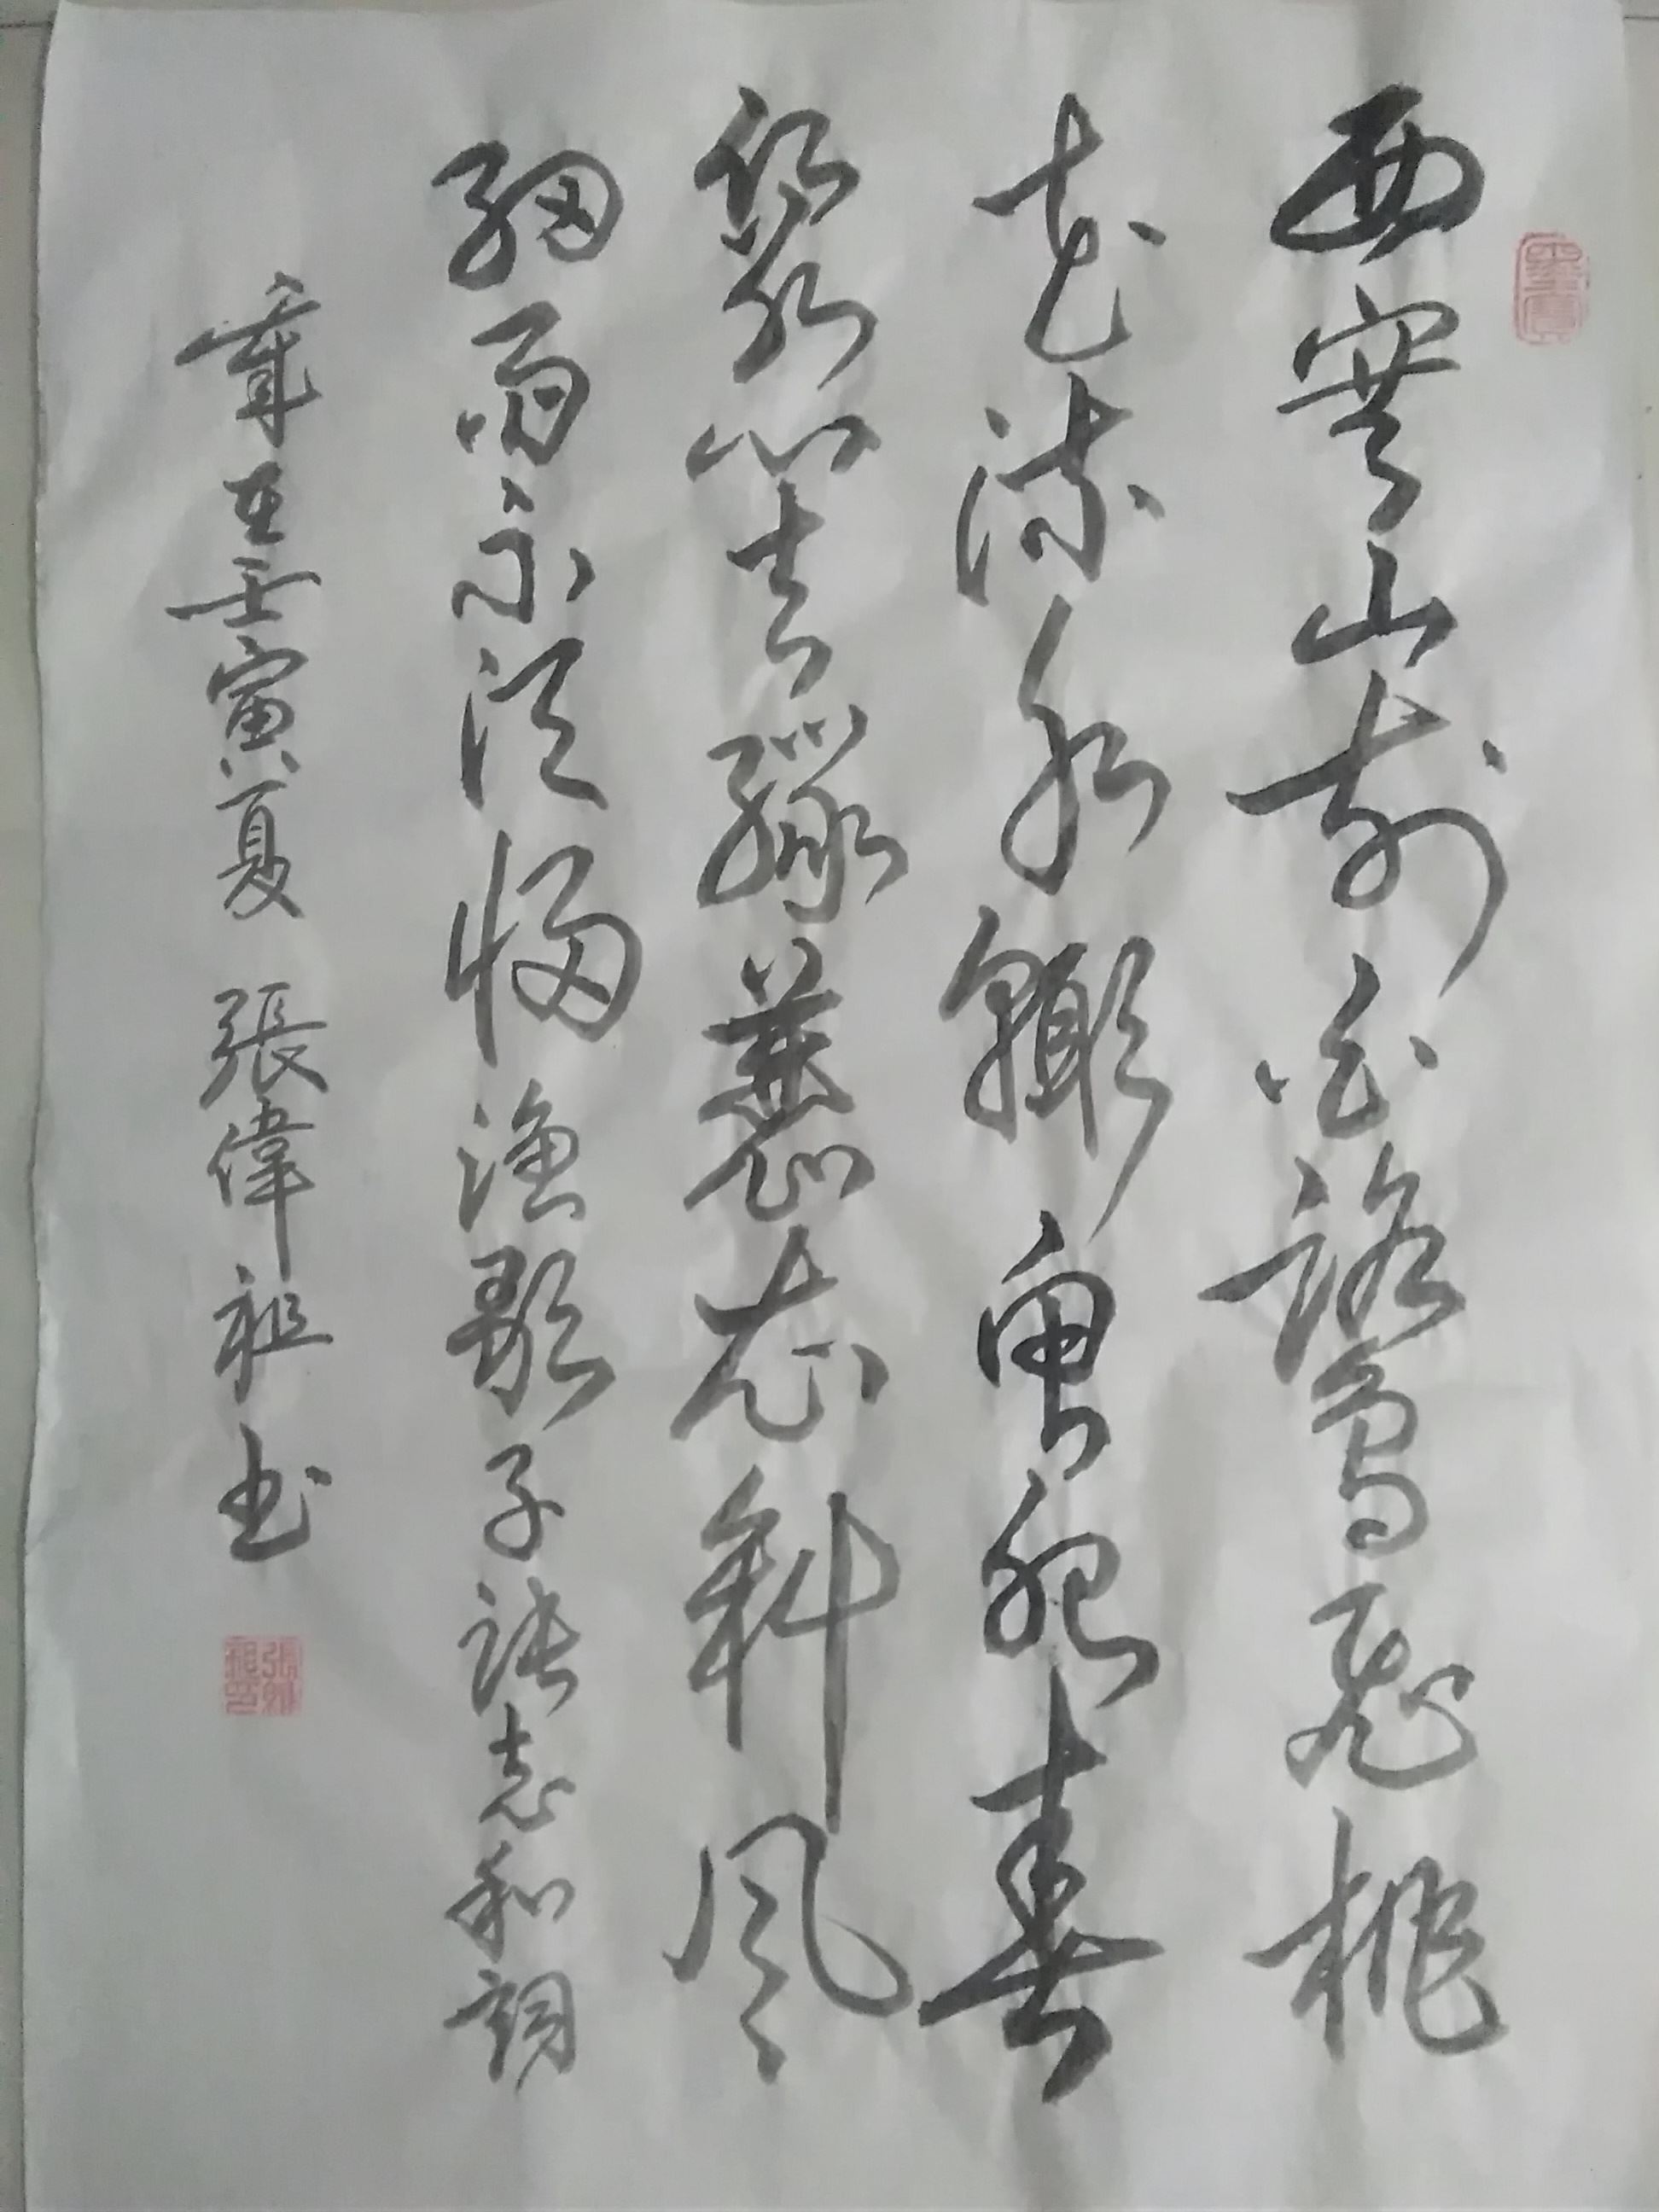 西塞山前白鷺飛桃
花流水鱖魚肥青
箬笠綠蓑衣斜風
細雨不須歸漁歌子張志和詞
歲在壬寅夏 張偉祖书